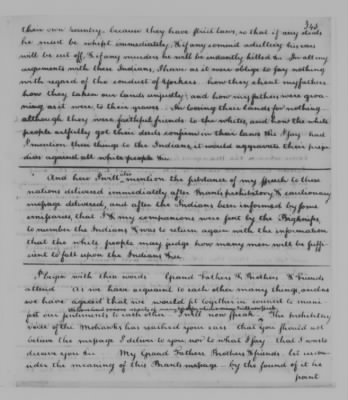 343
their own Country, because they have strict laws, so that if any steals
he must be whipt immediately, & if any commit adultery his ears
will be cut off, & if any murders he will be instantly killed &c. In all my
arguments with these Indians, I have as it were oblige to say nothing
with regard of the conduct of Yorkers, how they cheat my fathers
how they taken our lands unjustly, and how my fathers were groa-
ning as it were to their graves, in loosing their lands for nothing
although they were faithful friends to the whites; and how the white
people artfully got their deeds confirm in their laws &c I say had
I mention these things to the Indians, it would aggravate their preju-
dices against all white people &c
And here I will mention the substance of my speech to these
nations delivered immediately after Brants prohibitory & cautionary
message delivered, and after the Indians been informed by some
emissaries, that I & my companions were sent by the Bigknifes
to number the Indians & was to return again with the information
that the white people may judge how many men will be suffi-
cient to fall upon the Indians &c
I begin with these words Grand Fathers & Brothers & Friends
attend As we have acquaint to each other many things, and as
we have agreed that we would sit together in council to mani-
fest our sentiments to each other I will now speak. The prohibitory
voice of the Mohawks has reached your ears that you should not
believe the message I deliver to you nor to what I say, that I was to
deceave you &c My Grand Fathers Brothers & friends let us con-
sider the meaning of this Brants message - by the sound of it he
point